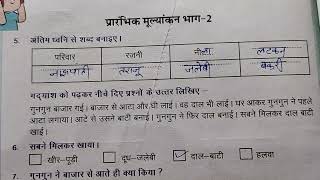 प्रारंभिक मूल्यांकन भाग-2
5. अंतिम ध्वनि से शब्द बनाइए।
परिवार रजनी नीला लटकन
नाशपाती तराजू जलेबी बकरी
गद्यांश को पढ़कर नीचे दिए प्रश्नों के उत्तर लिखिए -
गुनगुन बाजार गई। बाजार से आटा और घी लाई। वह दाल भी लाई। घर आकर गुनगुन ने पहले
आटा लगाया। आटे से उसने बाटी बनाई। गुनगुन ने फिर दाल बनाई। सबने मिलकर दाल बाटी
खाई।
6. सबने मिलकर खाया।
खीर-पूडी दूध-जलेबी दाल-बाटी हलवा
7. गुनगुन ने बाजार से आते ही क्या किया ?